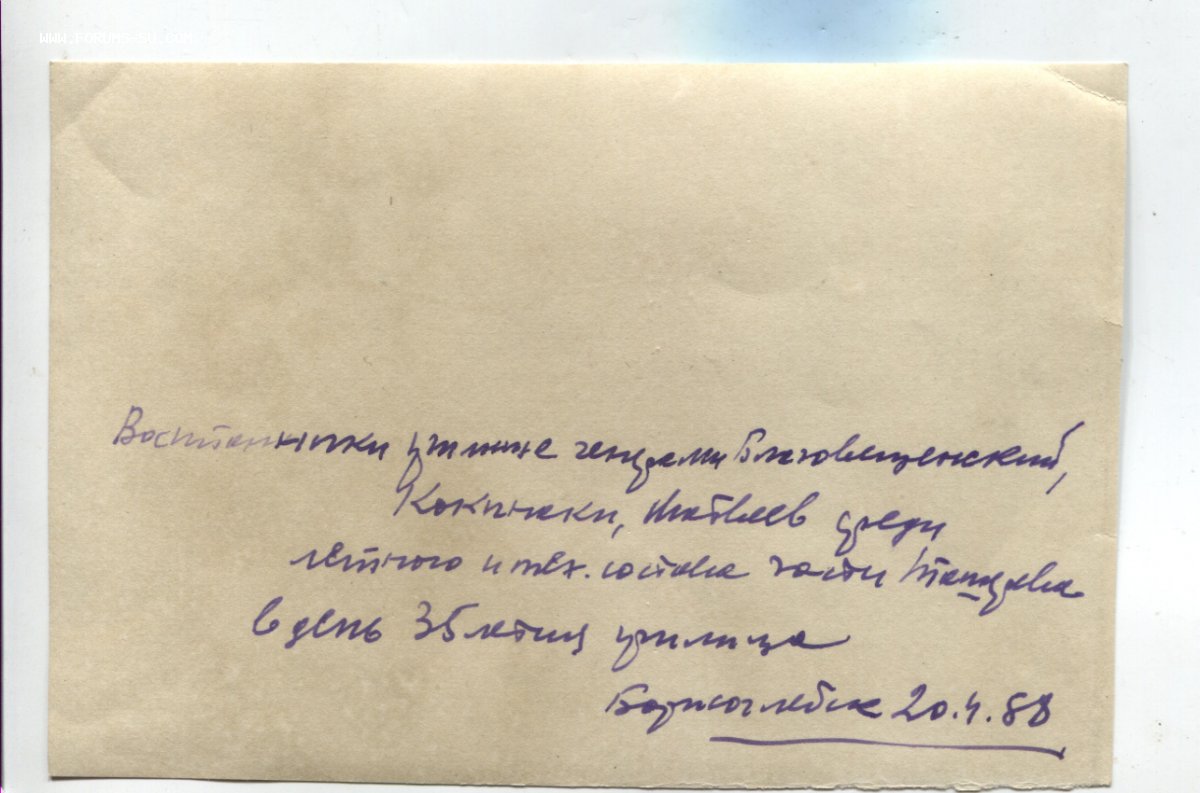 WWW.FORUMS-SU.COM
Воспитанники училища генералы Благовещенский,
Коккинаки, Матвеев среди
лётного и тех. состава части
в день 35 летия училища
Борисоглебск 20.4.88